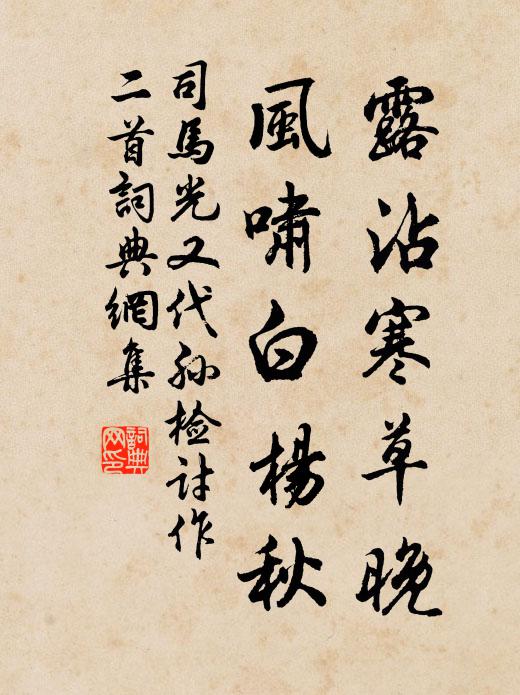 露沾寒草晚
風嘯白楊秋
司馬光又代孫檢討作
二首詞典網集
詞典
网印